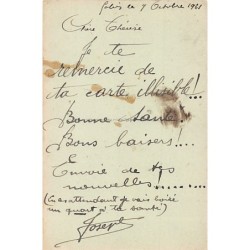 le 9 Octobre 1931
Chère Thérèse
Je te
remercie de
ta carte illisible!..
Bonne santé!
Bons baisers!....
E
Envoie de tes
nouvelles.........
(En attendant je vais boire
un quart à ta santé)
Joseph